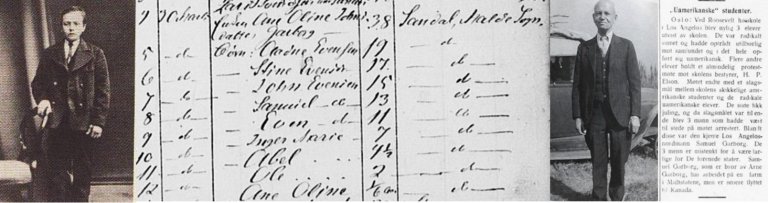 Ane Oline Johns 38 Sandal, Jælse Sogn,
datter, Garborg
5 -d- Børn: Evensen 19 -d-
6 -d- Stine Evensen 17 -d-
7 -d- John Evensen 15 -d-
8 -d- Samuel -do- 13 -d-
9 -d- Even -d- 11 -d-
10 -d- Inger Marie 7 -d-
11 -d- Abel 4½ -d-
Ole 2 -d-
12 -d- Ane Oline -d-
„Uamerikanske" studenter.
Oslo: Ved Roosevelt høiskole
i Los Angelos blev nylig 3 elever
utvist av skolen. De var radikalt
og hadde optrådt utilbørlig
mot samfundet og i det hele op-
ført sig uamerikansk. Flere andre
elever holdt et almindelig protest-
møte mot skolens bestyrer, H. P.
Elson. Møtet endte med et slags-
mål mellem skolens skikkelige ame-
rikanske studenter og de radikale
uamerikanske elever. De siste fikk
juling, og da slagsmålet var til en-
de blev 3 mann som hadde vært
til stede på møtet arrestert. Blandt
disse var den kjente Los Angelos-
nordmann Samuel Garborg. De
3 menn er mistenkt for å være far-
lige for De forenede stater. Sam-
uel Garborg, som er bror av Arne
Garborg, har arbeidet på en farm
i Midtstatene, men er senere flyttet
til Kanada.